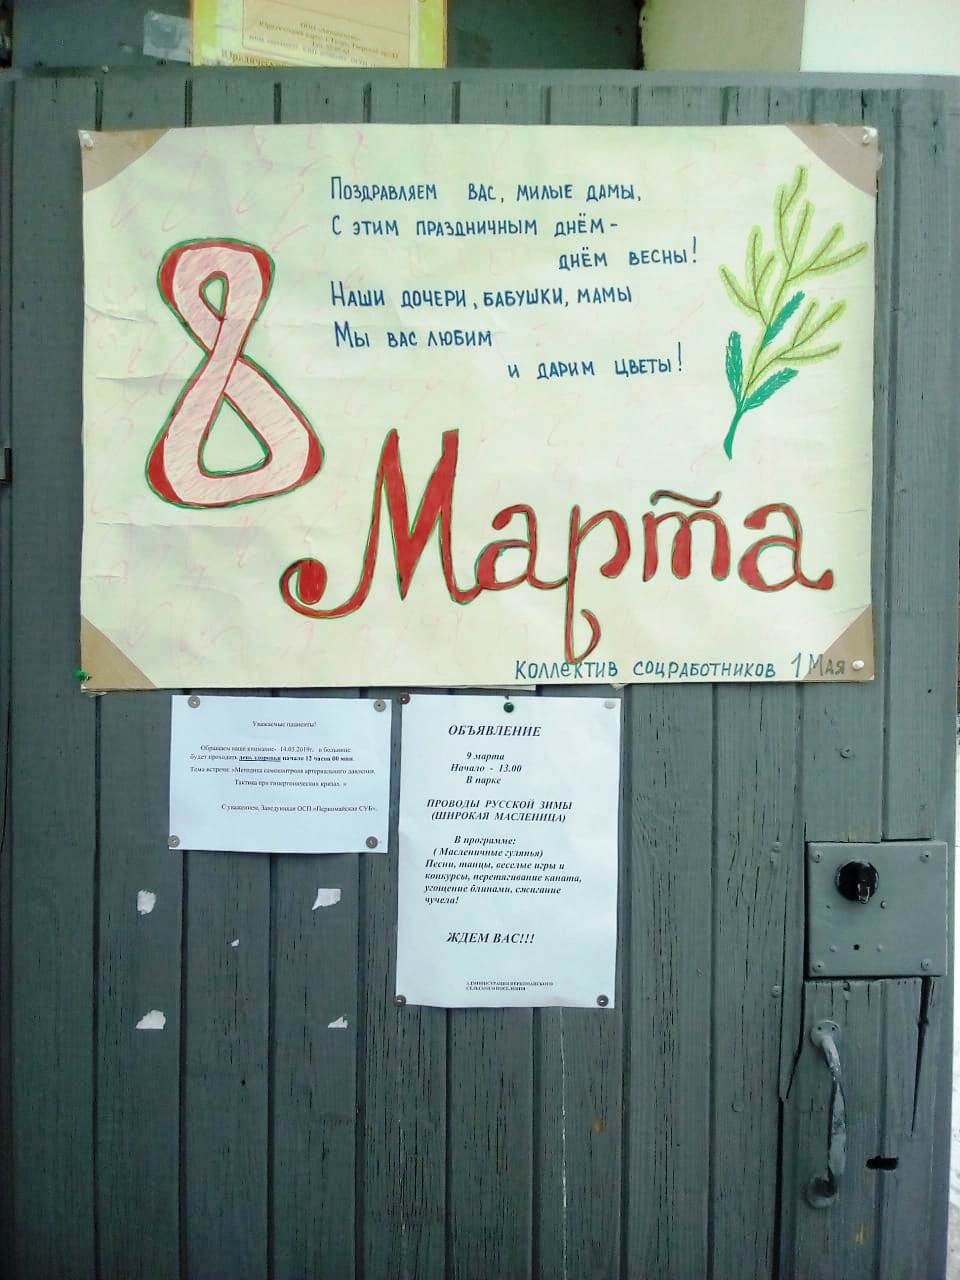 Поздравляем вас, милые дамы,
С этим праздничным днём -
днём весны!
Наши дочери, бабушки, мамы
Мы вас любим
и дарим цветы!
8
Марта
коллектив соцработников 1 Мая
Уважаемые пациенты!
Обращаем ваше внимание- 14.03.2019г. в больнице
будет проходить день здоровья начало 12 часов 00 мин.
Тема встречи: «Методика самоконтроля артериального давления.
Тактика при гипертонических кризах. »
С уважением, Заведующая ОСП «Первомайская СУБ».
ОБЪЯВЛЕНИЕ
9 марта
Начало - 13.00
В парке
ПРОВОДЫ РУССКОЙ ЗИМЫ
(ШИРОКАЯ МАСЛЕНИЦА)
В программе:
( Масленичные гулянья)
Песни, танцы, веселые игры и
конкурсы, перетягивание каната,
угощение блинами, сжигание
чучела!
ЖДЕМ ВАС!!!
АДМИНИСТРАЦИЯ ПЕРВОМАЙСКОГО
СЕЛЬСКОГО ПОСЕЛЕНИЯ